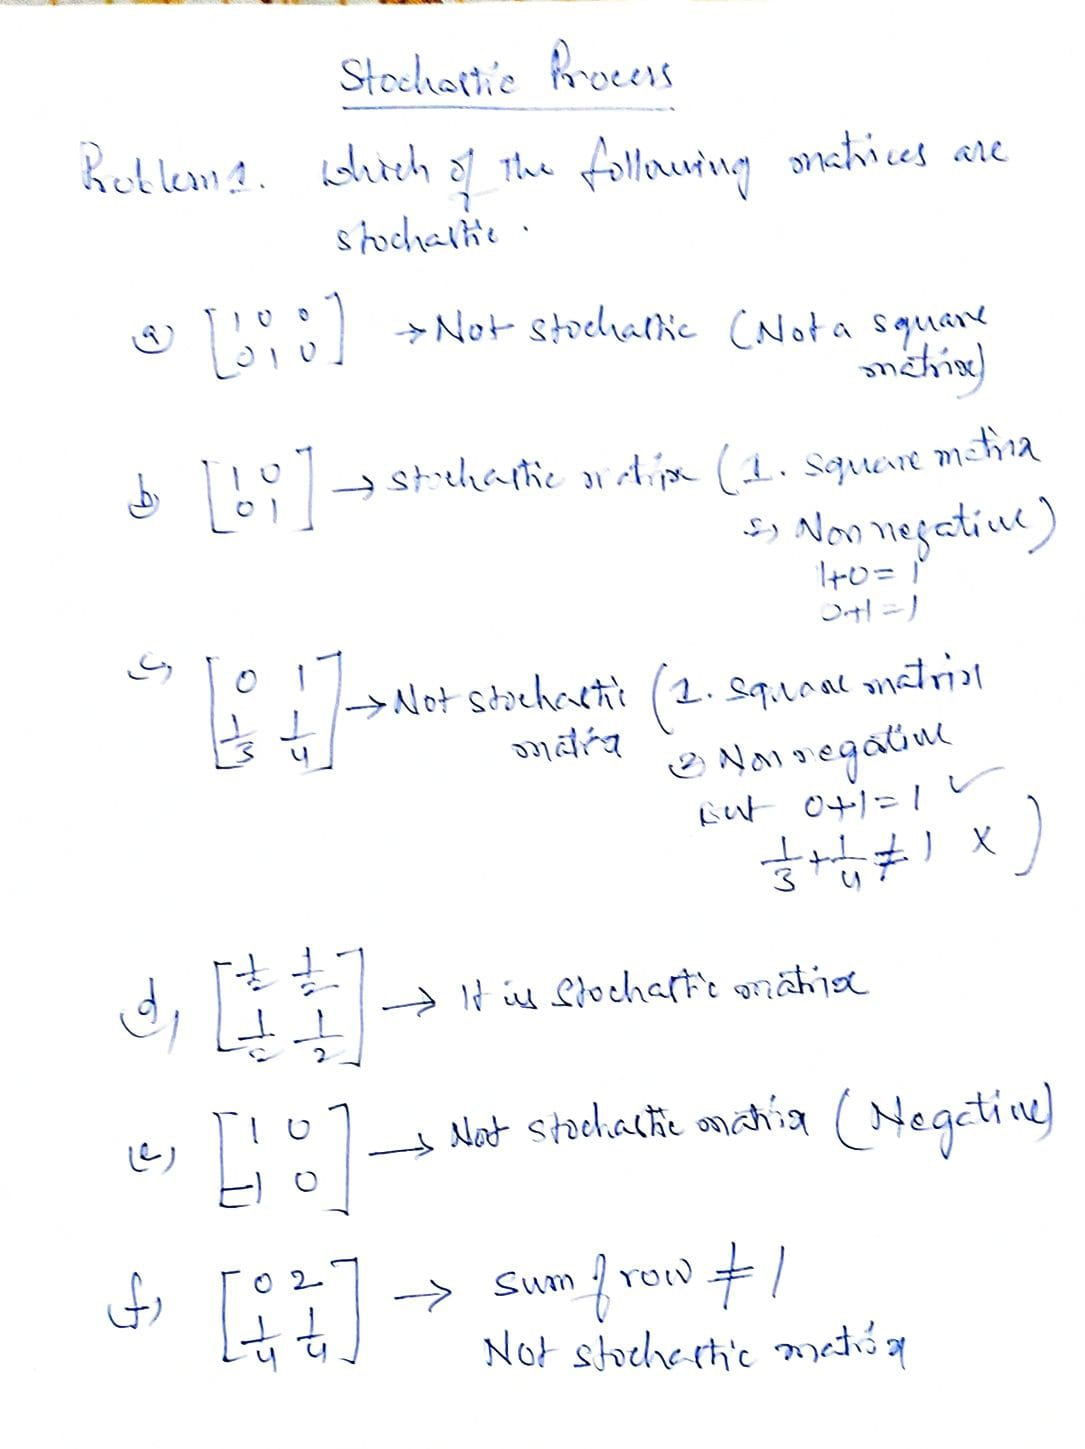 Stochastic Process
Problem 1. Which of the following matrices are
stochastic.
a) [1 0 0
0 1 0] → Not stochastic (Not a square
matrix)
b) [1 0
0 1] → stochastic matrix (1. square matrix
2) Non negative)
1+0=1
0+1=1
c) [0 1
1/3 1/4] → Not stochastic (1. square matrix
matrix 2) Non negative
But 0+1=1 ✓
1/3+1/4≠1 ×)
d) [1/2 1/2
1/2 1/2] → It is stochastic matrix
e) [1 0
-1 0] → Not stochastic matrix (Negative)
f) [0 2
1/4 1/4] → sum of row ≠ 1
Not stochastic matrix